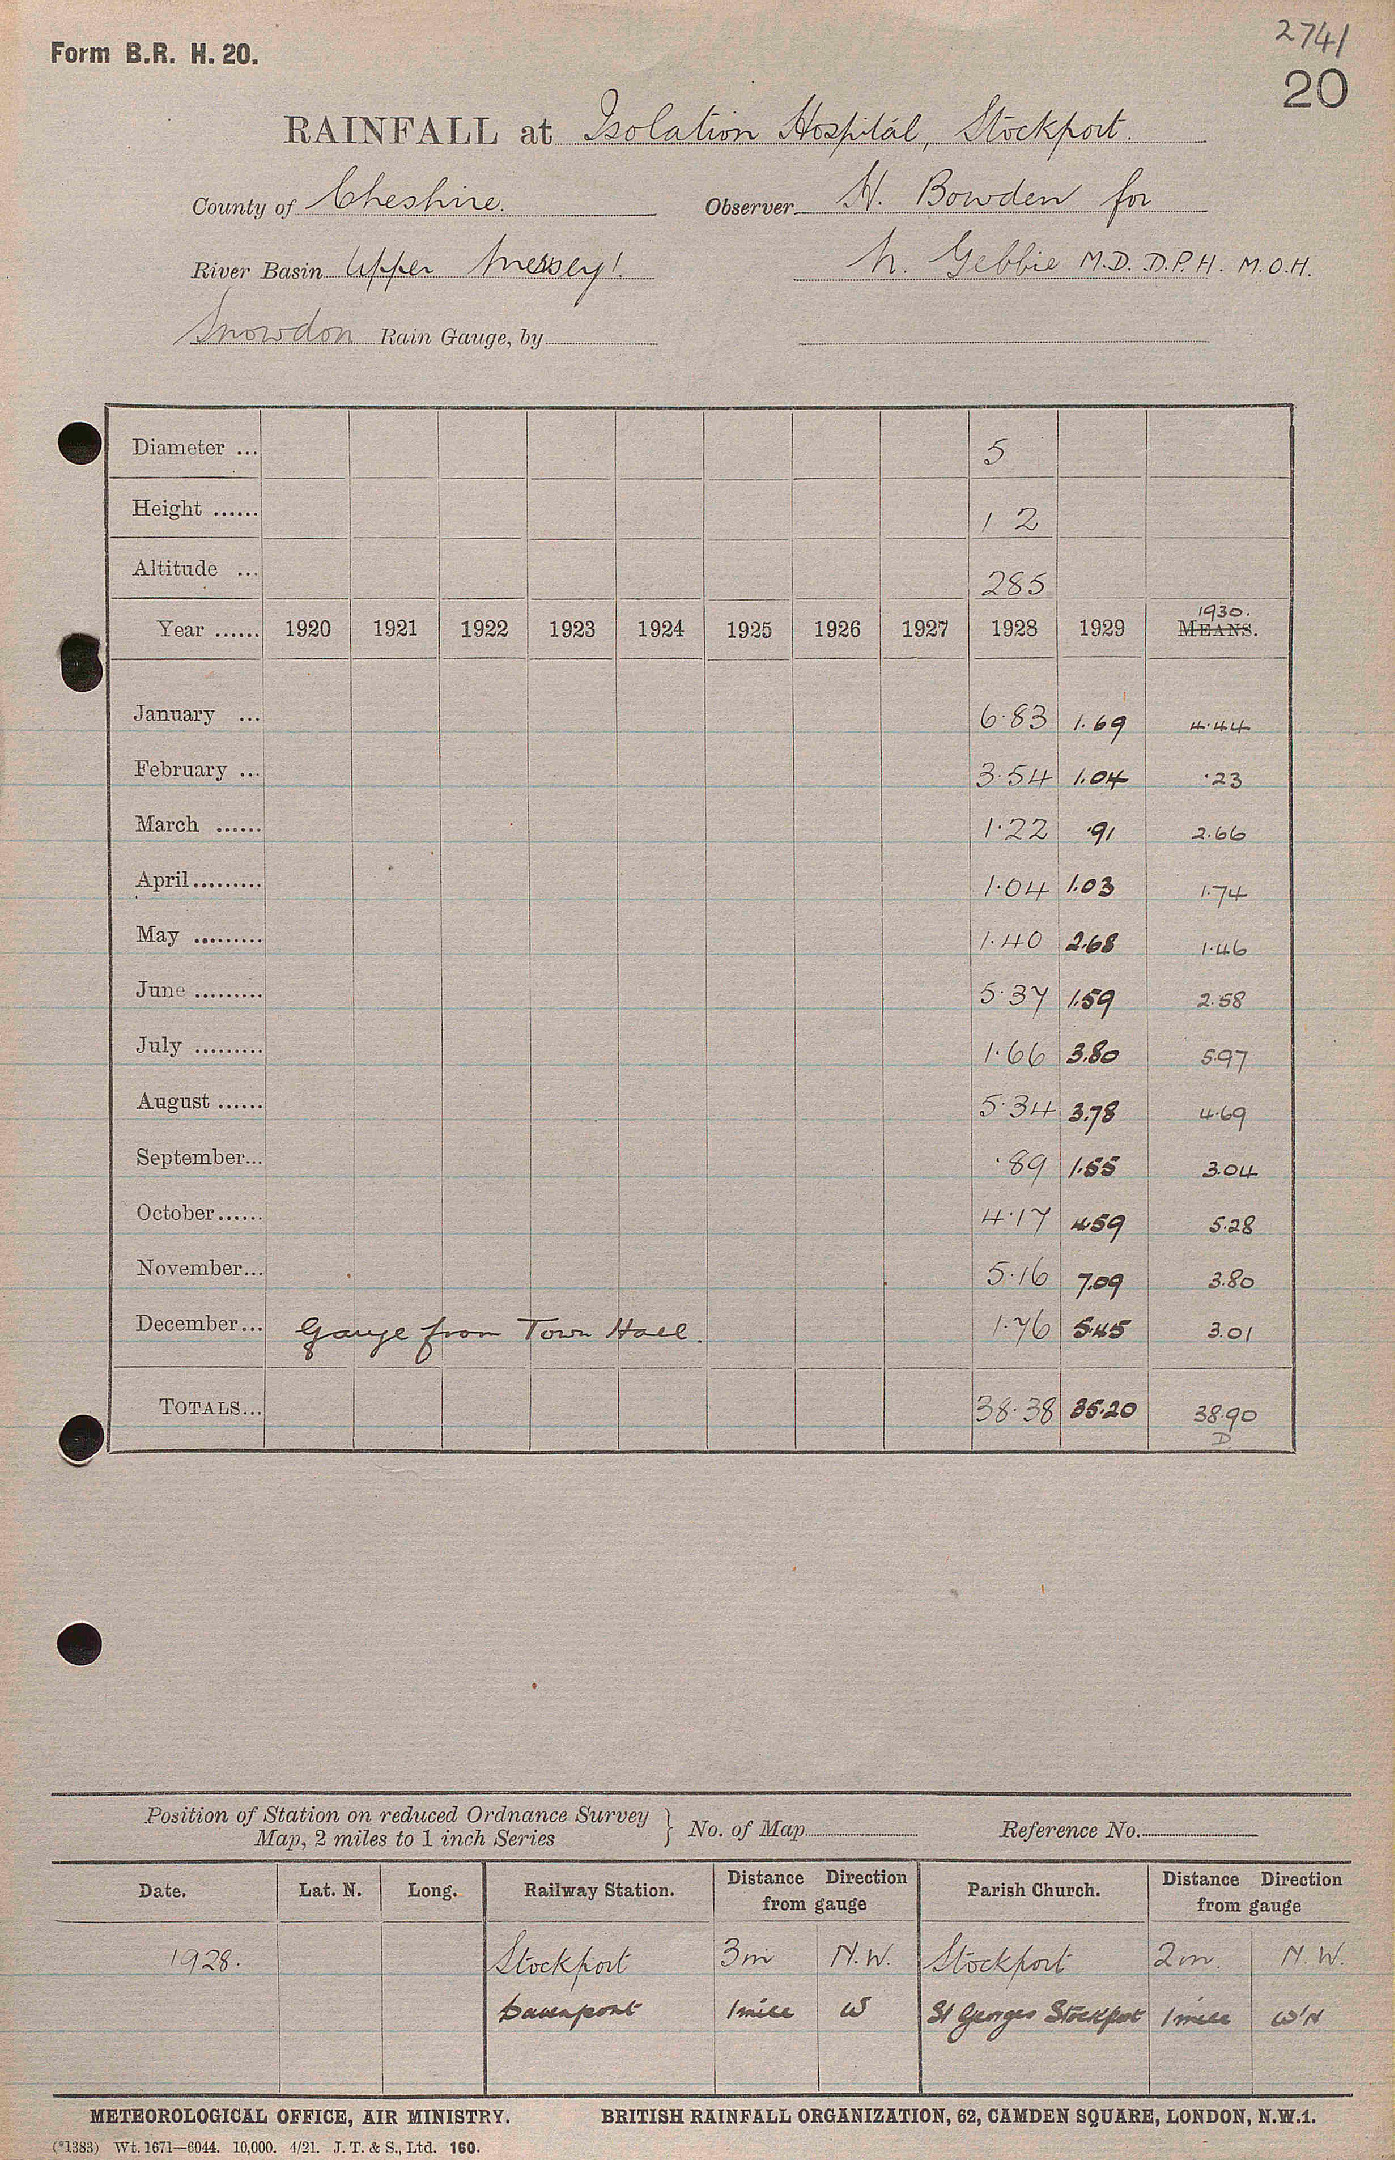 2741
Form B.R. H. 20.
20
RAINFALL at Isolation Hospital, Stockport.
County of Cheshire. Observer H. Bowden for
River Basin Upper Mersey. N. Gebbie M.D. D.P.H. M.O.H.
Snowdon Rain Gauge, by
Diameter ... 5
Height ...... 1 2
Altitude ... 285
1930.
Year ...... 1920 1921 1922 1923 1924 1925 1926 1927 1928 1929 MEANS.
January ... 6.83 1.69 4.44
February ... 3.54 1.04 .23
March ...... 1.22 .91 2.66
April......... 1.04 1.03 1.74
May ......... 1.40 2.68 1.46
June ......... 5.37 1.59 2.58
July ......... 1.66 3.80 5.97
August ...... 5.34 3.78 4.69
September... .89 1.55 3.04
October...... 4.17 4.59 5.28
November... 5.16 7.09 3.80
December... Gauge from Town Hall. 1.76 5.45 3.01
TOTALS... 38.38 35.20 38.90
D
Position of Station on reduced Ordnance Survey
Map, 2 miles to 1 inch Series } No. of Map Reference No.
Date. Lat. N. Long. Railway Station. Distance Direction from gauge Parish Church. Distance Direction from gauge
1928. Stockport 3m N.W. Stockport 2m. N.W.
Davenport 1 mile W St Georges Stockport 1 mile W'N
METEOROLOGICAL OFFICE, AIR MINISTRY. BRITISH RAINFALL ORGANIZATION, 62, CAMDEN SQUARE, LONDON, N.W.1.
(*1383) Wt. 1671—6044. 10,000. 4/21. J. T. & S., Ltd. 160.